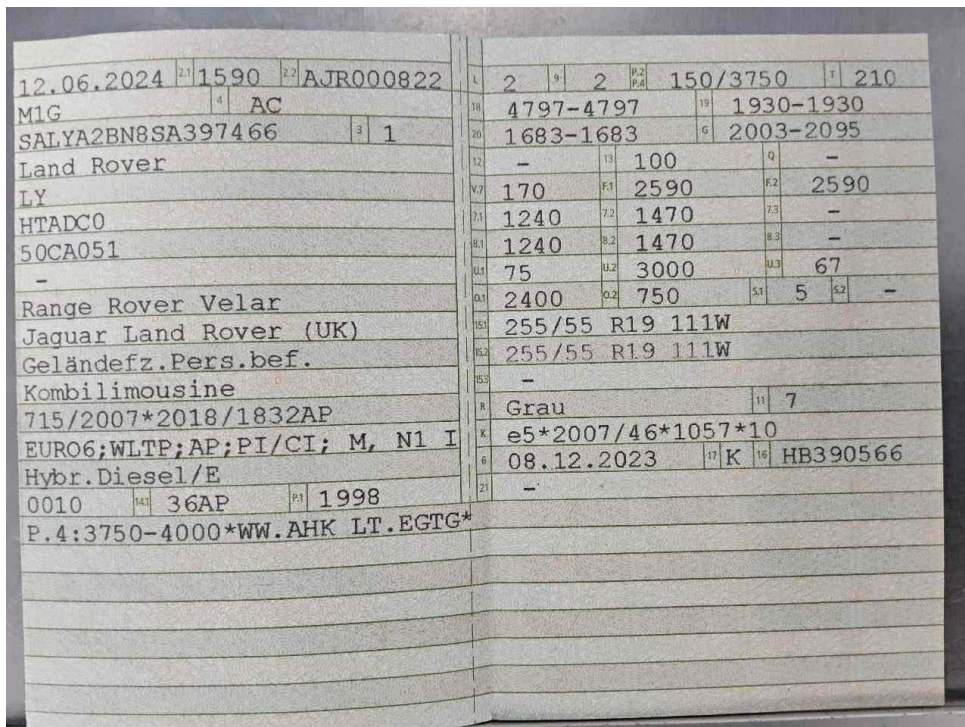 12.06.2024 2.1 1590 2.2 AJR000822
M1G 4 AC
SALYA2BN8SA397466 3 1
Land Rover
LY
HTADC0
50CA051
-
Range Rover Velar
Jaguar Land Rover (UK)
Geländefz.Pers.bef.
Kombilimousine
715/2007*2018/1832AP
EURO6;WLTP;AP;PI/CI; M, N1 I
Hybr.Diesel/E
0010 14.1 36AP P.1 1998
P.4:3750-4000*WW.AHK LT.EGTG*
L 2 9 2 P.2 P.4 150/3750 T 210
18 4797-4797 19 1930-1930
20 1683-1683 G 2003-2095
12 - 13 100 Q -
V.7 170 F.1 2590 F.2 2590
7.1 1240 7.2 1470 7.3 -
8.1 1240 8.2 1470 8.3 -
U.1 75 U.2 3000 U.3 67
O.1 2400 O.2 750 S.1 5 S.2 -
15.1 255/55 R19 111W
15.2 255/55 R19 111W
15.3 -
R Grau 11 7
K e5*2007/46*1057*10
6 08.12.2023 17 K 16 HB390566
21 -